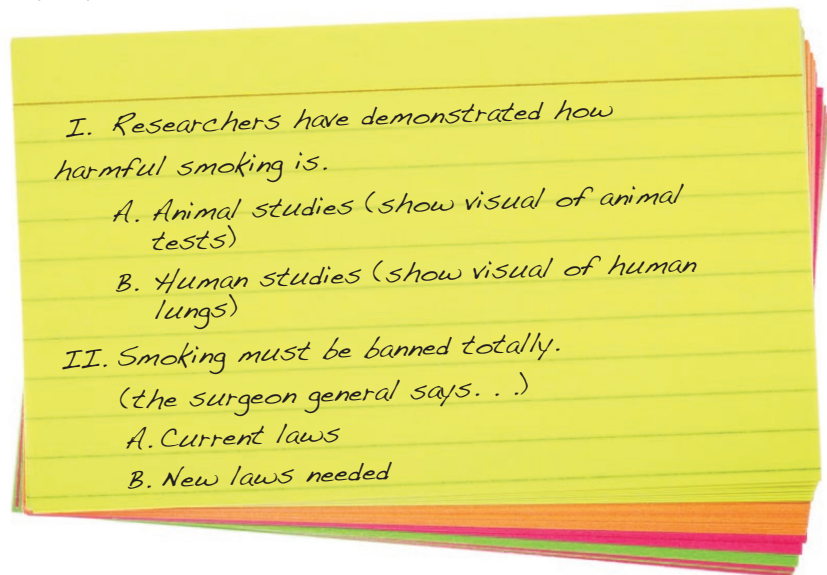 I. Researchers have demonstrated how
harmful smoking is.
A. Animal studies (show visual of animal
tests)
B. Human studies (show visual of human
lungs)
II. Smoking must be banned totally.
(the surgeon general says. . .)
A. Current laws
B. New laws needed